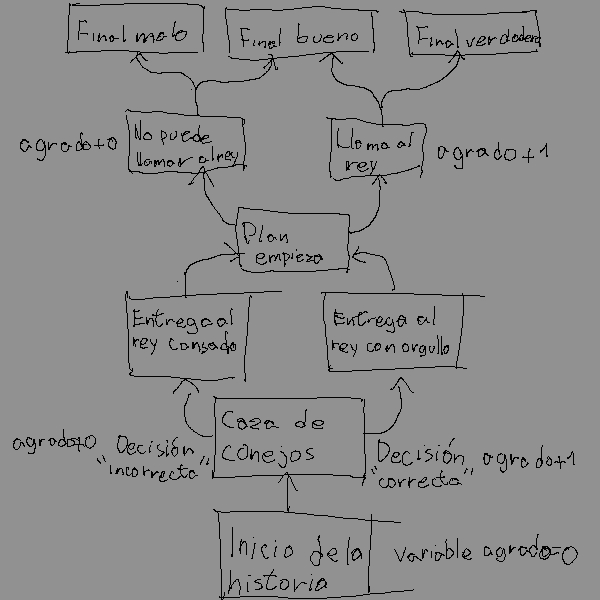 Final malo
Final bueno
Final verdadero
agrado+0
No puede
llamar al rey
Llama al
rey
agrado+1
Plan
empieza
Entrega al
rey cansado
Entrega al
rey con orgullo
agrado+0
Decisión
"incorrecta"
Caza de
conejos
Decisión
"correcta"
agrado+1
Inicio de la
historia
variable agrado=0